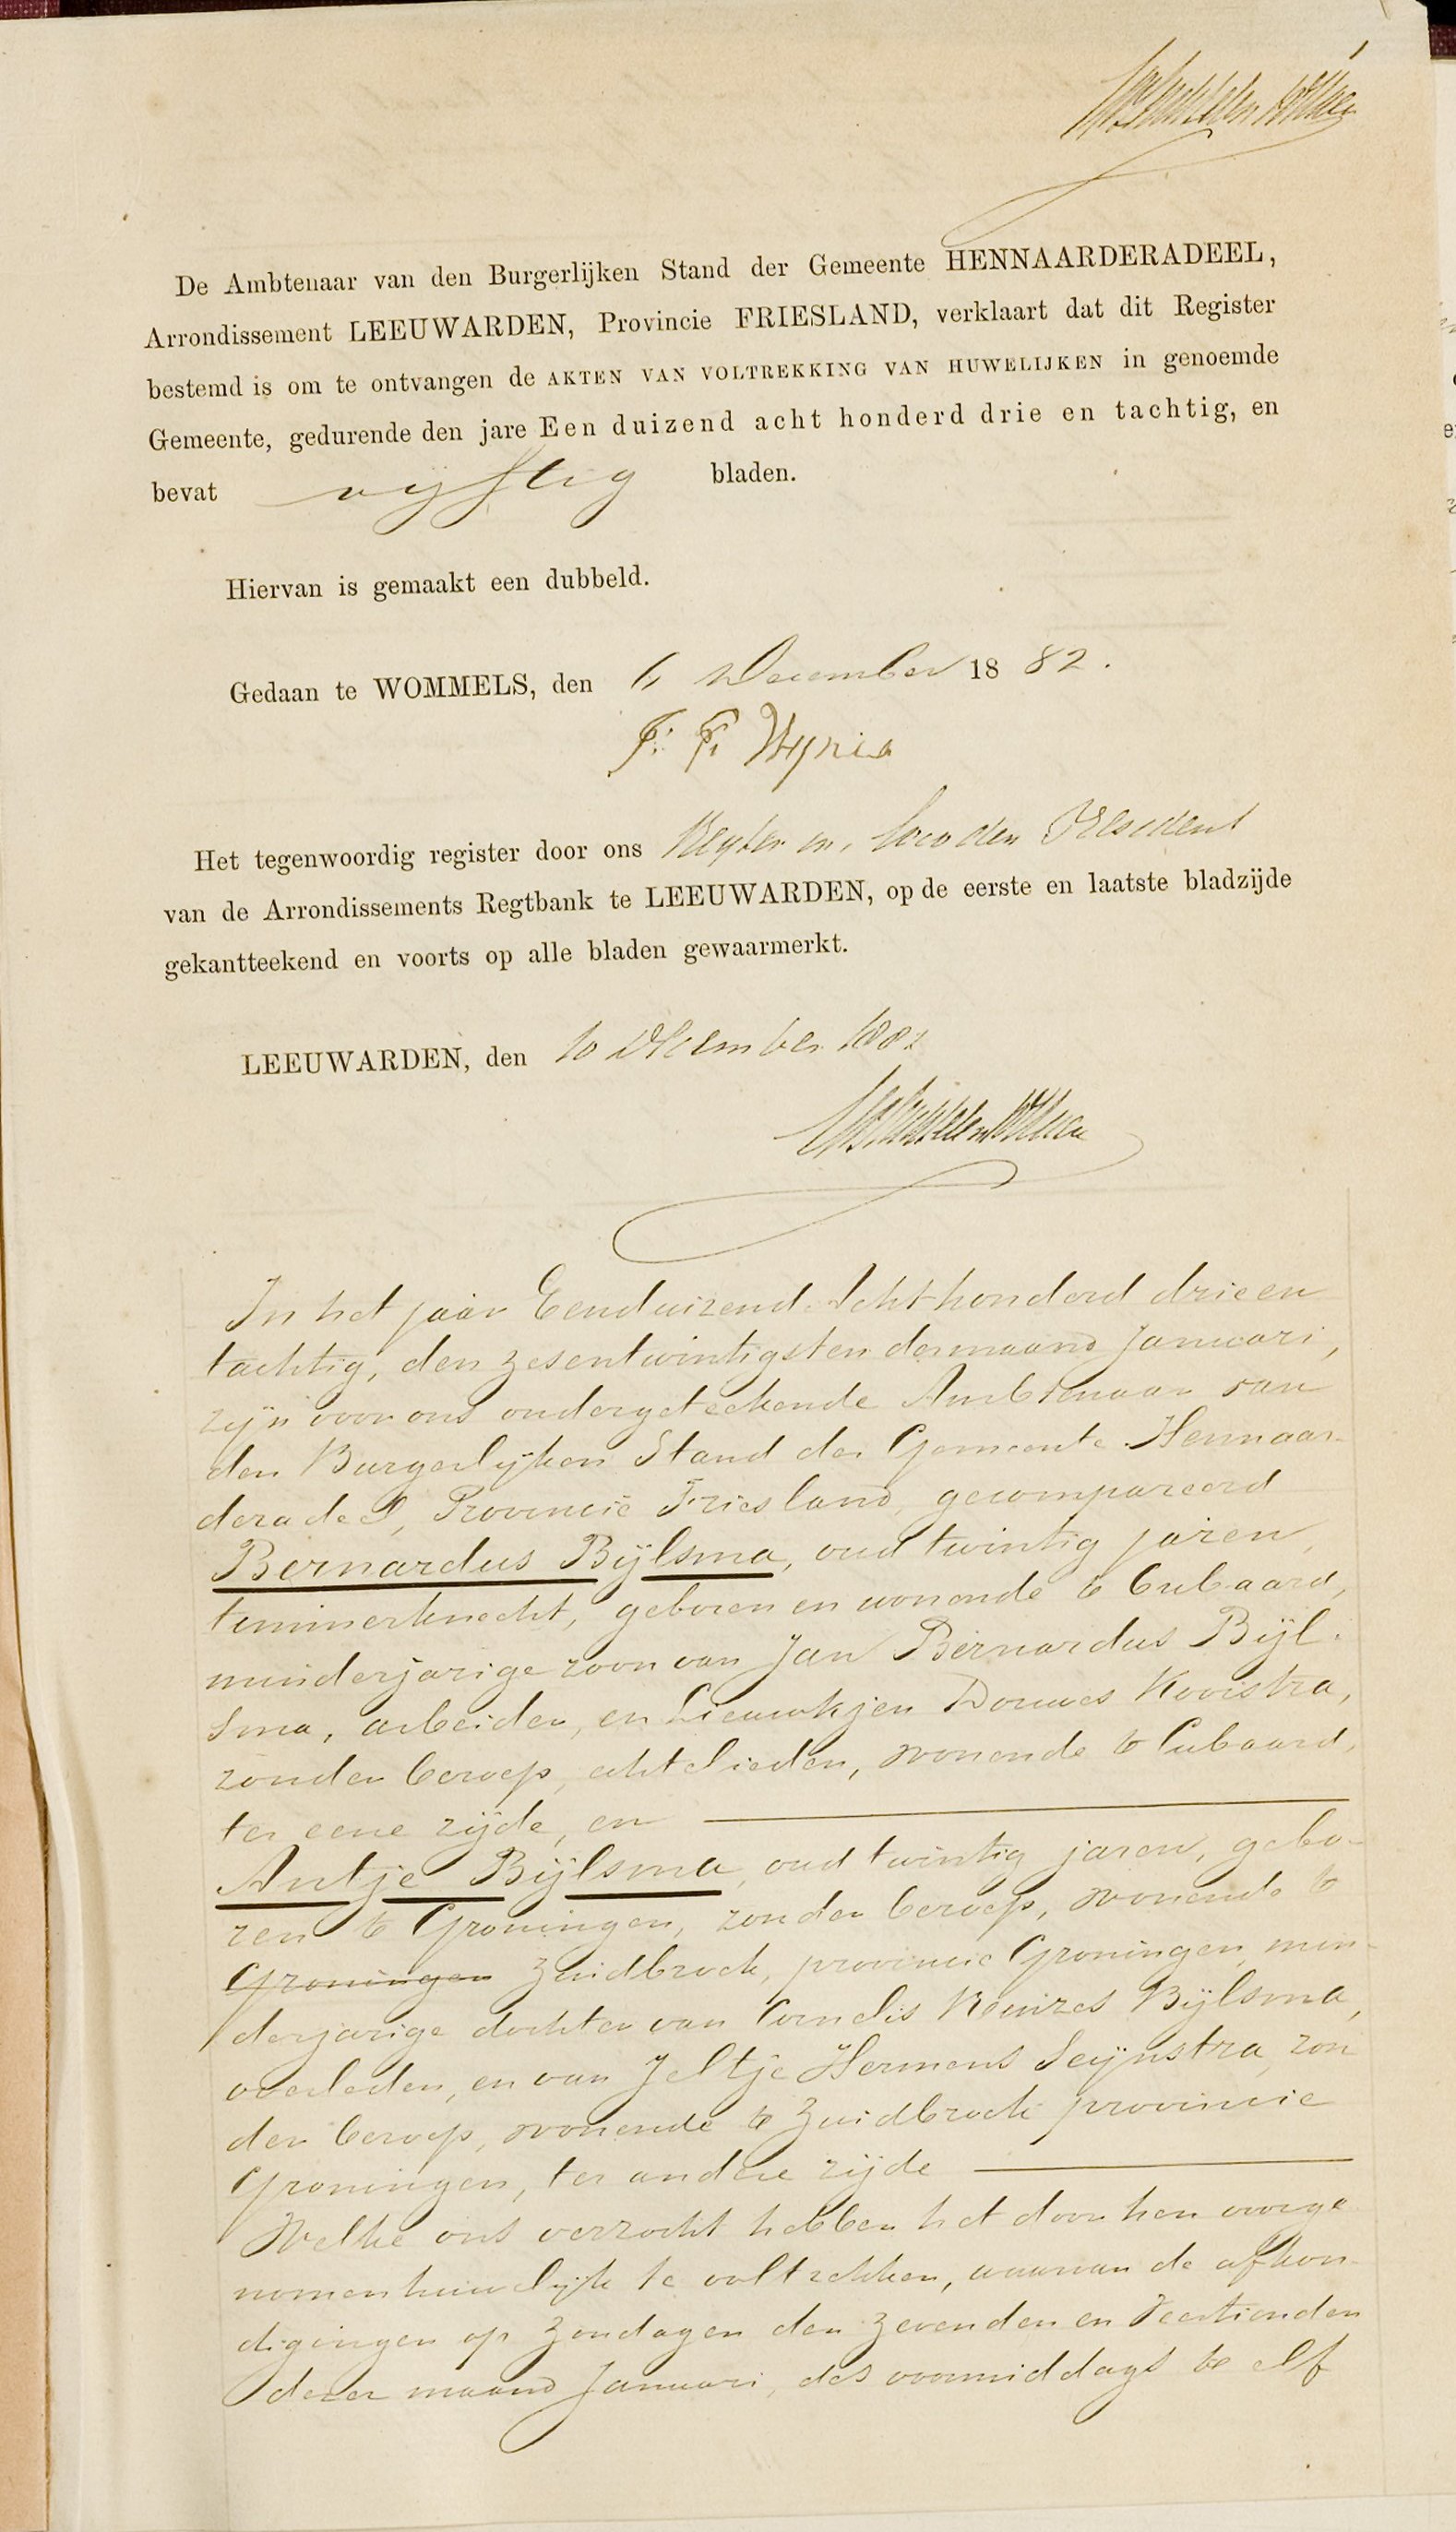 De Ambtenaar van den Burgerlijken Stand der Gemeente HENNAARDERADEEL,
Arrondissement LEEUWARDEN, Provincie FRIESLAND, verklaart dat dit Register
bestemd is om te ontvangen de AKTEN VAN VOLTREKKING VAN HUWELIJKEN in genoemde
Gemeente, gedurende den jare Een duizend acht honderd drie en tachtig, en
bevat vijftig bladen.
Hiervan is gemaakt een dubbeld.
Gedaan te WOMMELS, den December 1882.
Het tegenwoordig register door ons Regter in, loco den President
van de Arrondissements Regtbank te LEEUWARDEN, op de eerste en laatste bladzijde
gekantteekend en voorts op alle bladen gewaarmerkt.
LEEUWARDEN, den 10 December 1882
In het jaar Eenduizend Achthonderd drieen
tachtig, den zesentwintigsten der maand Januari,
zijn voor ons ondergeteekende Ambtenaar van
den Burgerlijken Stand der Gemeente Hennaar-
deradeel, Provincie Friesland, gecompareerd
Bernardus Bijlsma, oud twintig jaren,
timmerknecht, geboren en wonende te Cubaard,
minderjarige zoon van Jan Bernardus Bijl-
sma, arbeider, en Lieuwkjen Douwes Kooistra,
zonder beroep, echtelieden, wonende te Cubaard,
ter eene zijde, en
Antje Bijlsma, oud twintig jaren, gebo-
ren te Groningen, zonder beroep, wonende te
Groningen Zuidbroek, provincie Groningen, min-
derjarige dochter van Cornelis Reinzes Bijlsma,
overleden, en van Jeltje Hermens Seijnstra, zon
der beroep, wonende te Zuidbroek provincie
Groningen, ter andere zijde
Welke ons verzocht hebben het door hen voorge
nomen huwelijk te voltrekken, waarvan de afkon-
digingen op Zondagen den zevenden en veertienden
dezer maand Januari, des voormiddags te elf